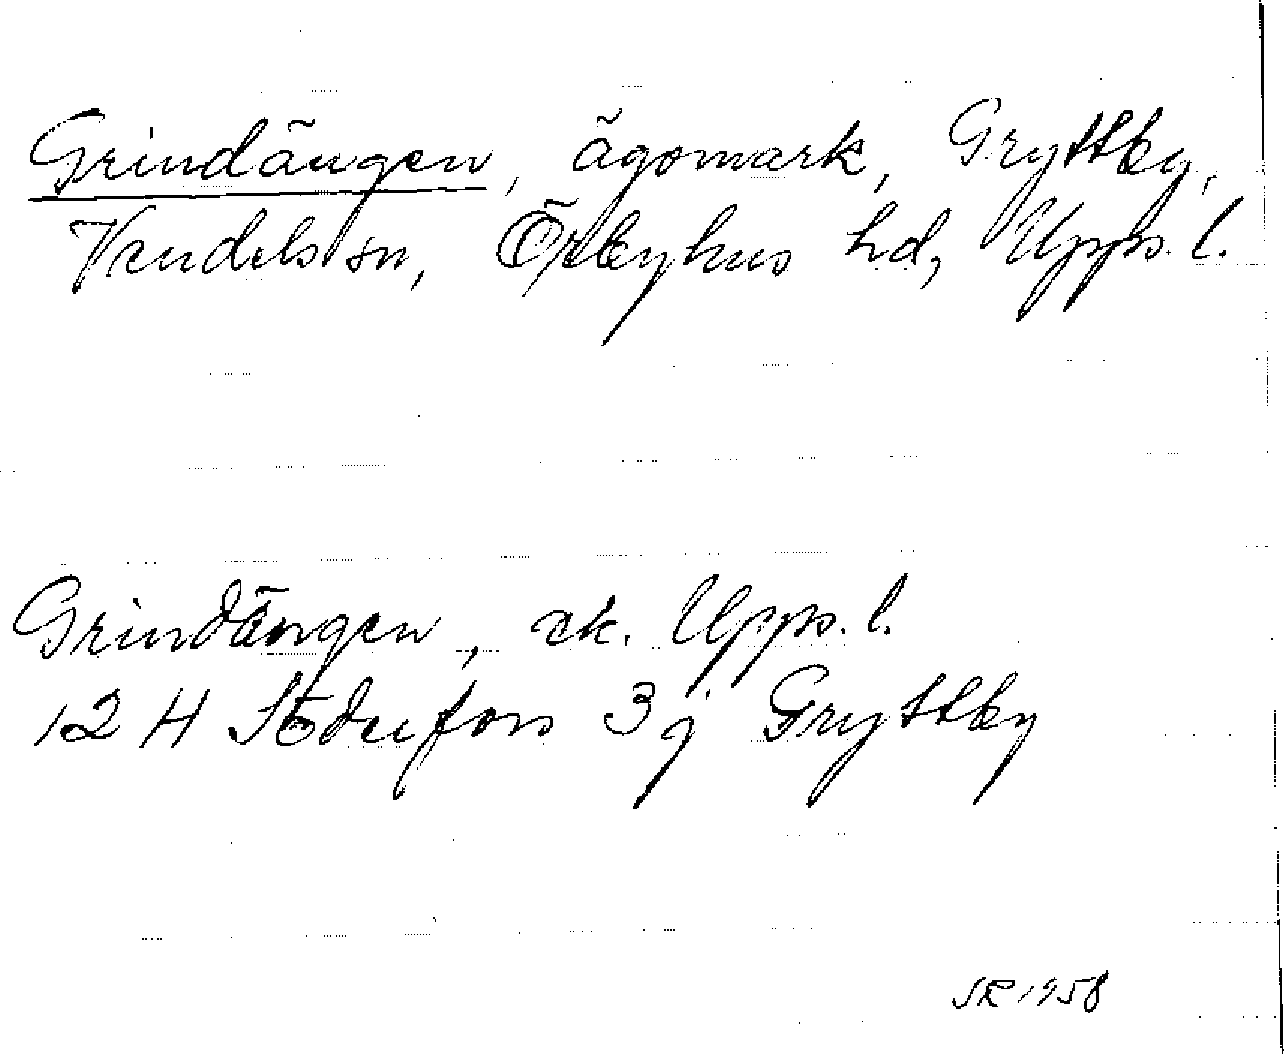 Grindängen, ägomark, Gryttby,
Vendels sn, Örbyhus hd, Upps. l.
Grindängen, ek. Upps. l.
12 H Söderfors 3 j Gryttby
SR 1958